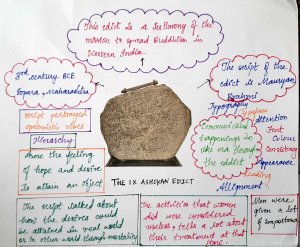 This edict is a testimony of the
mission to spread Buddhism in
Western India.
3rd century BCE
Sopara, Maharashtra
script portrayed
optimistic vibes
Hierarchy
show the feeling
of hope and desire
to attain an object
The script talked about
how the desires could
be attained in real world
or other world through
THE IX ASHOKAN EDICT
The script of the
edict is Mauryan
Brahmi
Typography
Typeface
Attention
Font
Colour
Consistency
Appearance
Leading
Allignment
Communicated
happenings in
the era
the edict
The activities that women
did were considered
useless, tells a lot about
their treatment at that
time.
Men were
given a lot
of importance